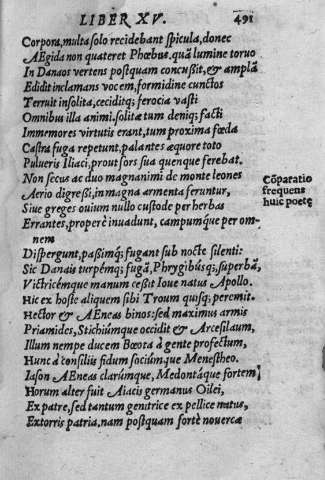 LIBER XV. 491
Corpora, multa solo recidebant spicula, donec
AEgida non quateret Phœbus. quã lumine toruo
In Danaos vertens postquam concußit, & amplã
Edidit inclamans vocem, formidine cunctos
Terruit insolita, ceciditq; ferocia vasti
Omnibus illa animi. solitæ tum deniq; facti
Immemores virtutis erant, tum proxima fœda
Castra fuga repetunt, palantes æquore toto
Pulueris Iliaci, prout sors sua quenque ferebat.
Non secus ac duo magnanimi de monte leones
Aerio digreßi, in magna armenta feruntur,
Siue greges ouium nullo custode per herbas
Errantes, properè inuadunt, campumq́ue per om-
nem
Dispergunt, paßimq́; fugant sub nocte silenti:
Sic Danais turpémq; fugã, Phrygibúsq; superbã,
Victricémque manum ceßit Ioue natus Apollo.
Hic ex hoste aliquem sibi Troum quisq; peremit.
Hector & AEneas binos: sed maximus armis
Priamides, Stichiúmque occidit & Arcesilaum,
Illum nempe ducem Bœota à gente profectum,
Hunc à consiliis fidum sociúmque Menestheo.
Iason AEneas clarúmque, Medontáque fortem,
Horum alter fuit Aiacis germanus Oilei,
Ex patre, sed tantum genitrice ex pellice natus,
Extorris patria, nam postquam fortè nouercæ
Cõparatio
frequens
huic poetę